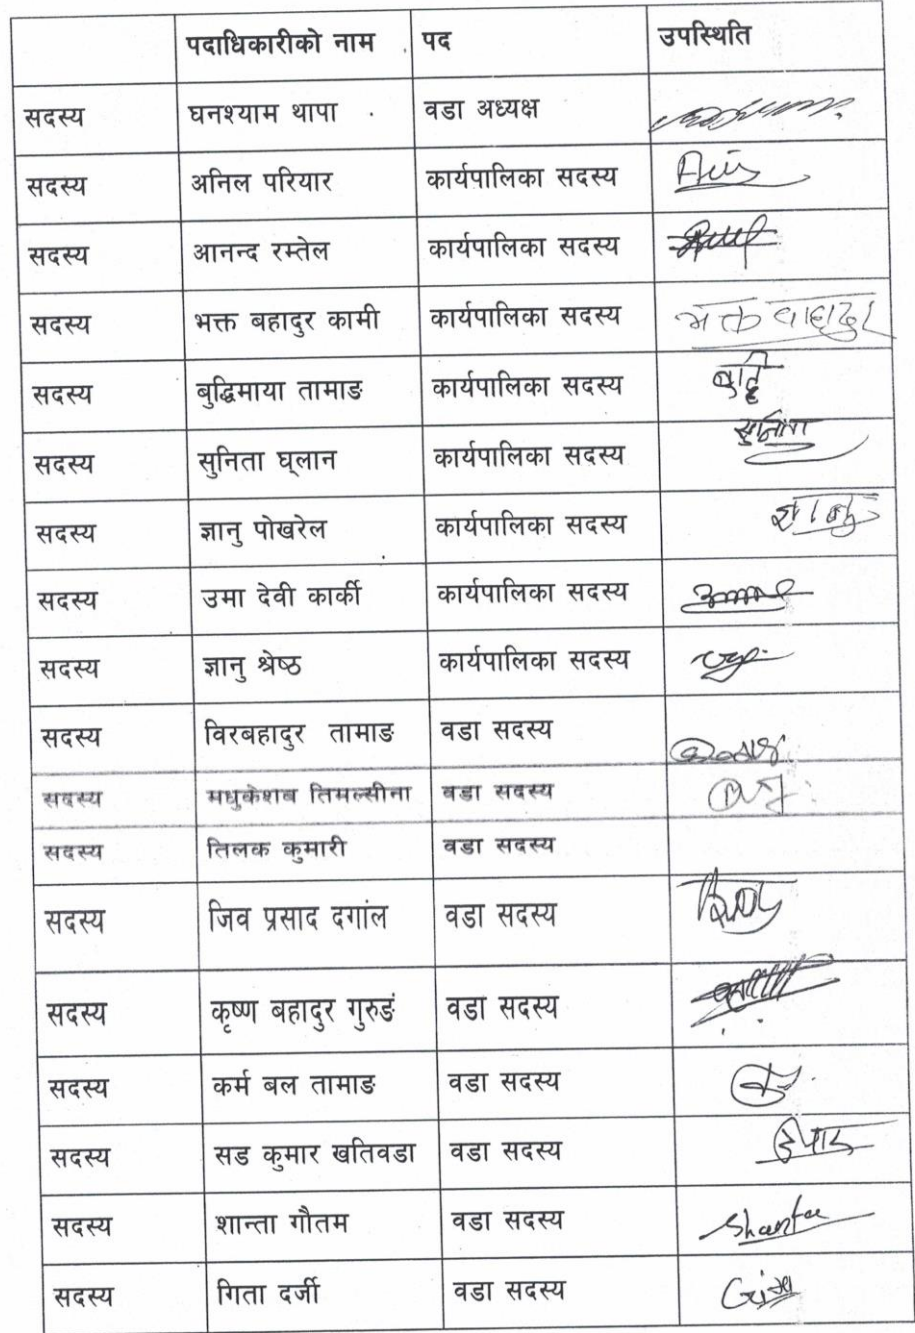 पदाधिकारीको नाम पद उपस्थिति
सदस्य घनश्याम थापा वडा अध्यक्ष
सदस्य अनिल परियार कार्यपालिका सदस्य
सदस्य आनन्द रम्तेल कार्यपालिका सदस्य
सदस्य भक्त बहादुर कामी कार्यपालिका सदस्य भक्त बाहादुर
सदस्य बुद्धिमाया तामाङ कार्यपालिका सदस्य
सदस्य सुनिता घ्लान कार्यपालिका सदस्य सुनिता
सदस्य ज्ञानु पोखरेल कार्यपालिका सदस्य
सदस्य उमा देवी कार्की कार्यपालिका सदस्य
सदस्य ज्ञानु श्रेष्ठ कार्यपालिका सदस्य
सदस्य विरबहादुर तामाङ वडा सदस्य
सदस्य मधुकेशब तिमल्सीना वडा सदस्य
सदस्य तिलक कुमारी वडा सदस्य
सदस्य जिव प्रसाद दगांल वडा सदस्य
सदस्य कृष्ण बहादुर गुरुङं वडा सदस्य
सदस्य कर्म बल तामाङ वडा सदस्य
सदस्य सड कुमार खतिवडा वडा सदस्य
सदस्य शान्ता गौतम वडा सदस्य Shanta
सदस्य गिता दर्जी वडा सदस्य